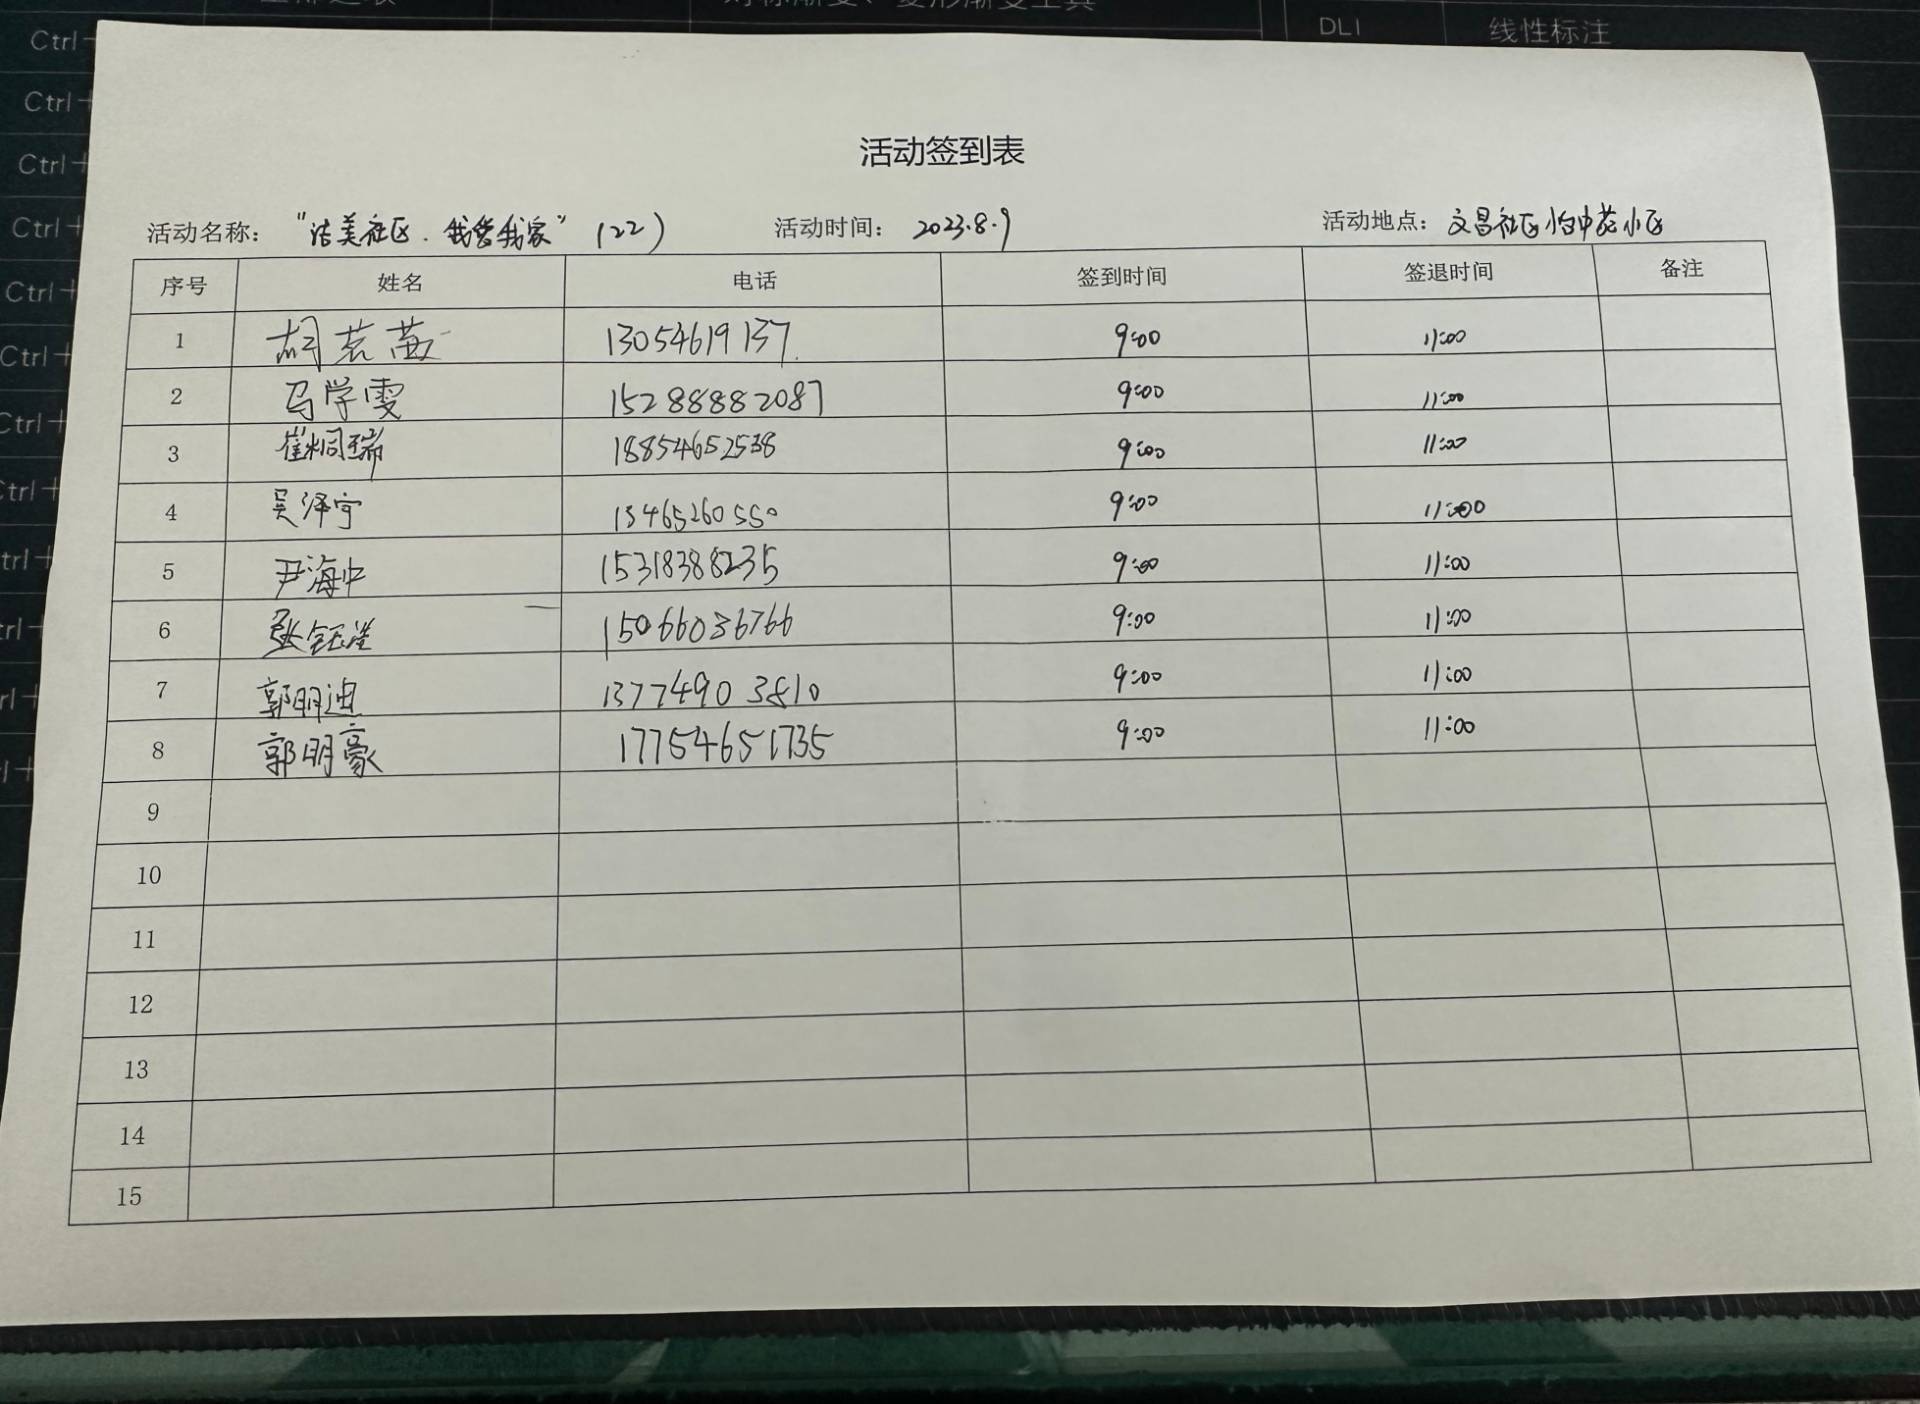 DLI 线性标注
Ctrl+
Ctrl+
Ctrl+
Ctrl+
Ctrl+
Ctrl+
Ctrl+
活动签到表
活动名称： "洁美社区.我爱我家"（22） 活动时间： 2023.8.9 活动地点： 文昌社区怡中花小区
序号 姓名 电话 签到时间 签退时间 备注
1 胡若茜 13054619137 9:00 11:00
2 马学雯 15288882087 9:00 11:00
3 崔桐瑞 18854652538 9:00 11:00
4 吴泽宇 13465260550 9:00 11:00
5 尹海中 15318388235 9:00 11:00
6 张钰滢 15066036766 9:00 11:00
7 郭明迪 13774903810 9:00 11:00
8 郭明豪 17754651735 9:00 11:00
9
10
11
12
13
14
15